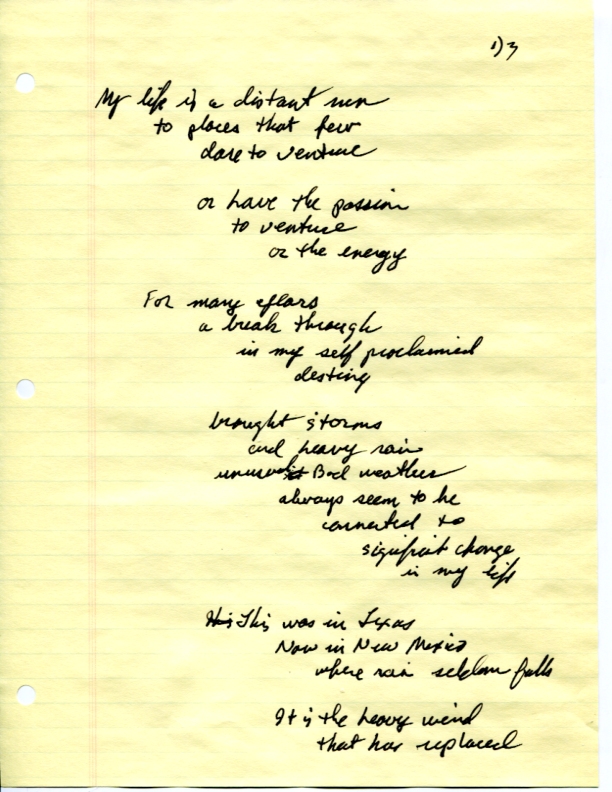 1)3
My life is a distant run
to places that few
dare to venture
or have the passion
to venture
or the energy
For many years
a break through
in my self proclaimied
destiny
brought storms
and heavy rain
Bad weather
always seem to be
connected to
signifiait change
in my life
This This was in Texas
Now in New Mexico
where rain seldom falls
It is the heavy wind
that has replaced